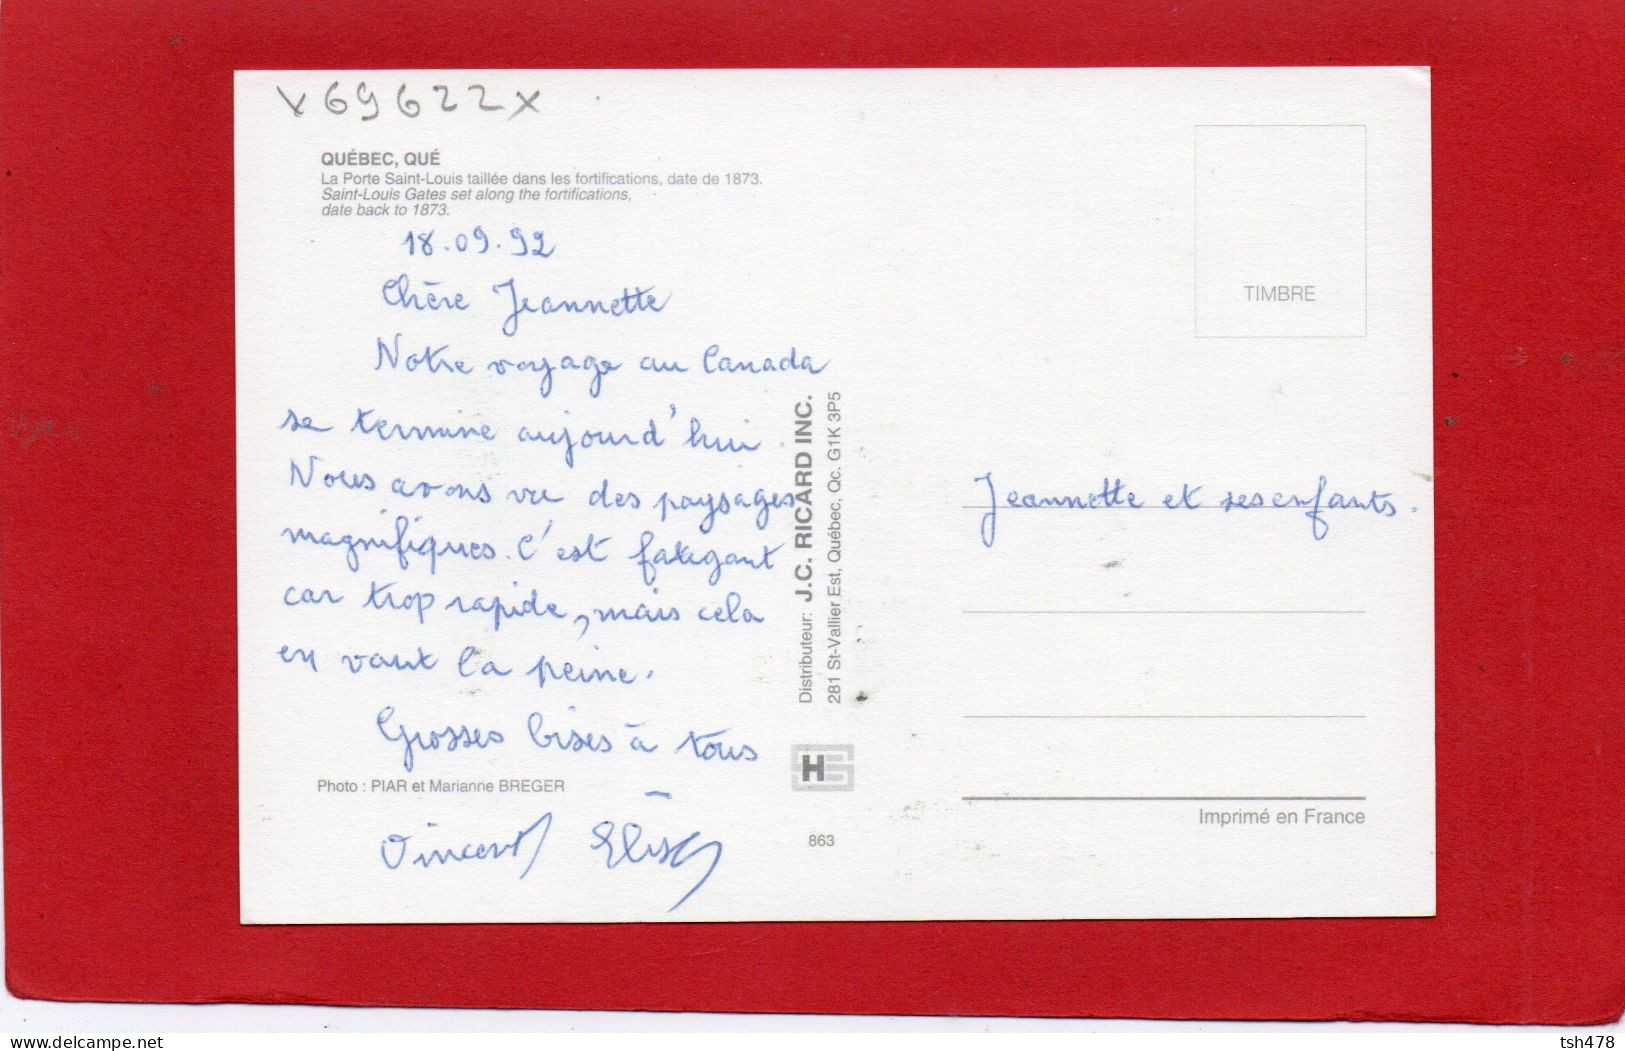 x69622x
QUÉBEC, QUÉ
La Porte Saint-Louis taillée dans les fortifications, date de 1873.
Saint-Louis Gates set along the fortifications,
date back to 1873.
18.09.92
Chère Jeannette
Notre voyage au Canada
se termine aujourd'hui.
Nous avons vu des paysages
magnifiques. C'est fatigant
car trop rapide, mais cela
en vaut la peine.
Grosses bises à tous
Photo : PIAR et Marianne BREGER
Vincent
Distributeur: J.C. RICARD INC.
281 St-Vallier Est, Québec, Qc. G1K 3P5
863
TIMBRE
Jeannette et ses enfants.
Imprimé en France
www.delcampe.net
tsh478